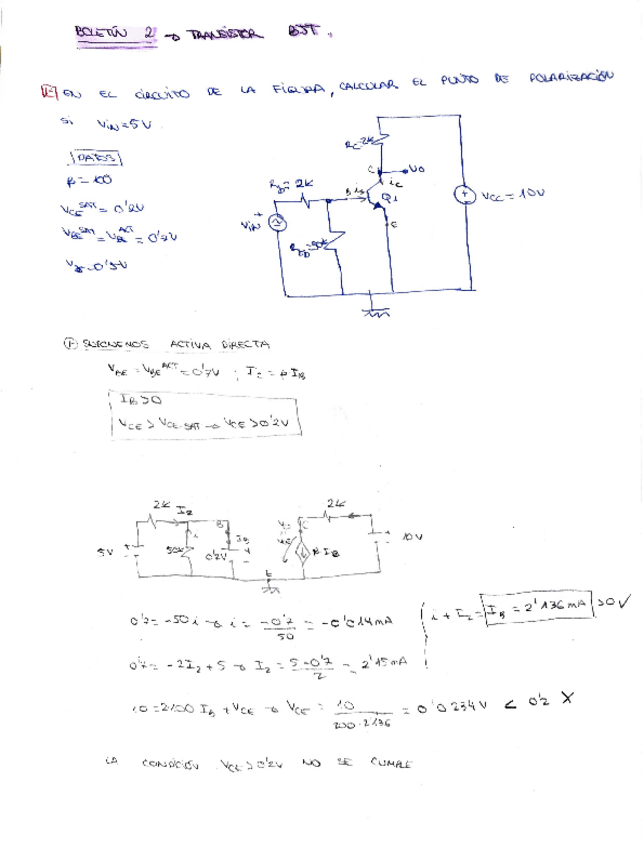 BOLETÍN 2 → TRANSISTOR BJT.
1- EN EL CIRCUITO DE LA FIGURA, CALCULAR EL PUNTO DE POLARIZACIÓN
SI VIN = 5V
DATOS
β = 100
VCE SAT = 0'2V
VBE SAT = VBE ACT = 0'7V
Vγ = 0'5V
RC = 2K
C
VO
iC
RB = 2K
B
iB
Q1
VIN
E
VCC = 10V
① SUPONEMOS ACTIVA DIRECTA
VBE = VBE ACT = 0'7V ; IC = β IB
IB > 0
VCE > VCE SAT → VCE > 0'2V
2K
I2
2K
B
C
5V
50K
IB
0'7V
β IB
10V
E
0'7 = -50i → i = -0'7/50 = -0'014mA
i + I2 = IB = 2'136mA > 0 ✓
0'7 = -2I2 + 5 → I2 = 5-0'7/2 = 2'15mA
10 = 2·100 IB + VCE → VCE = 10/200·2'136 = 0'0234V < 0'2 X
LA CONDICIÓN VCE > 0'2V NO SE CUMPLE